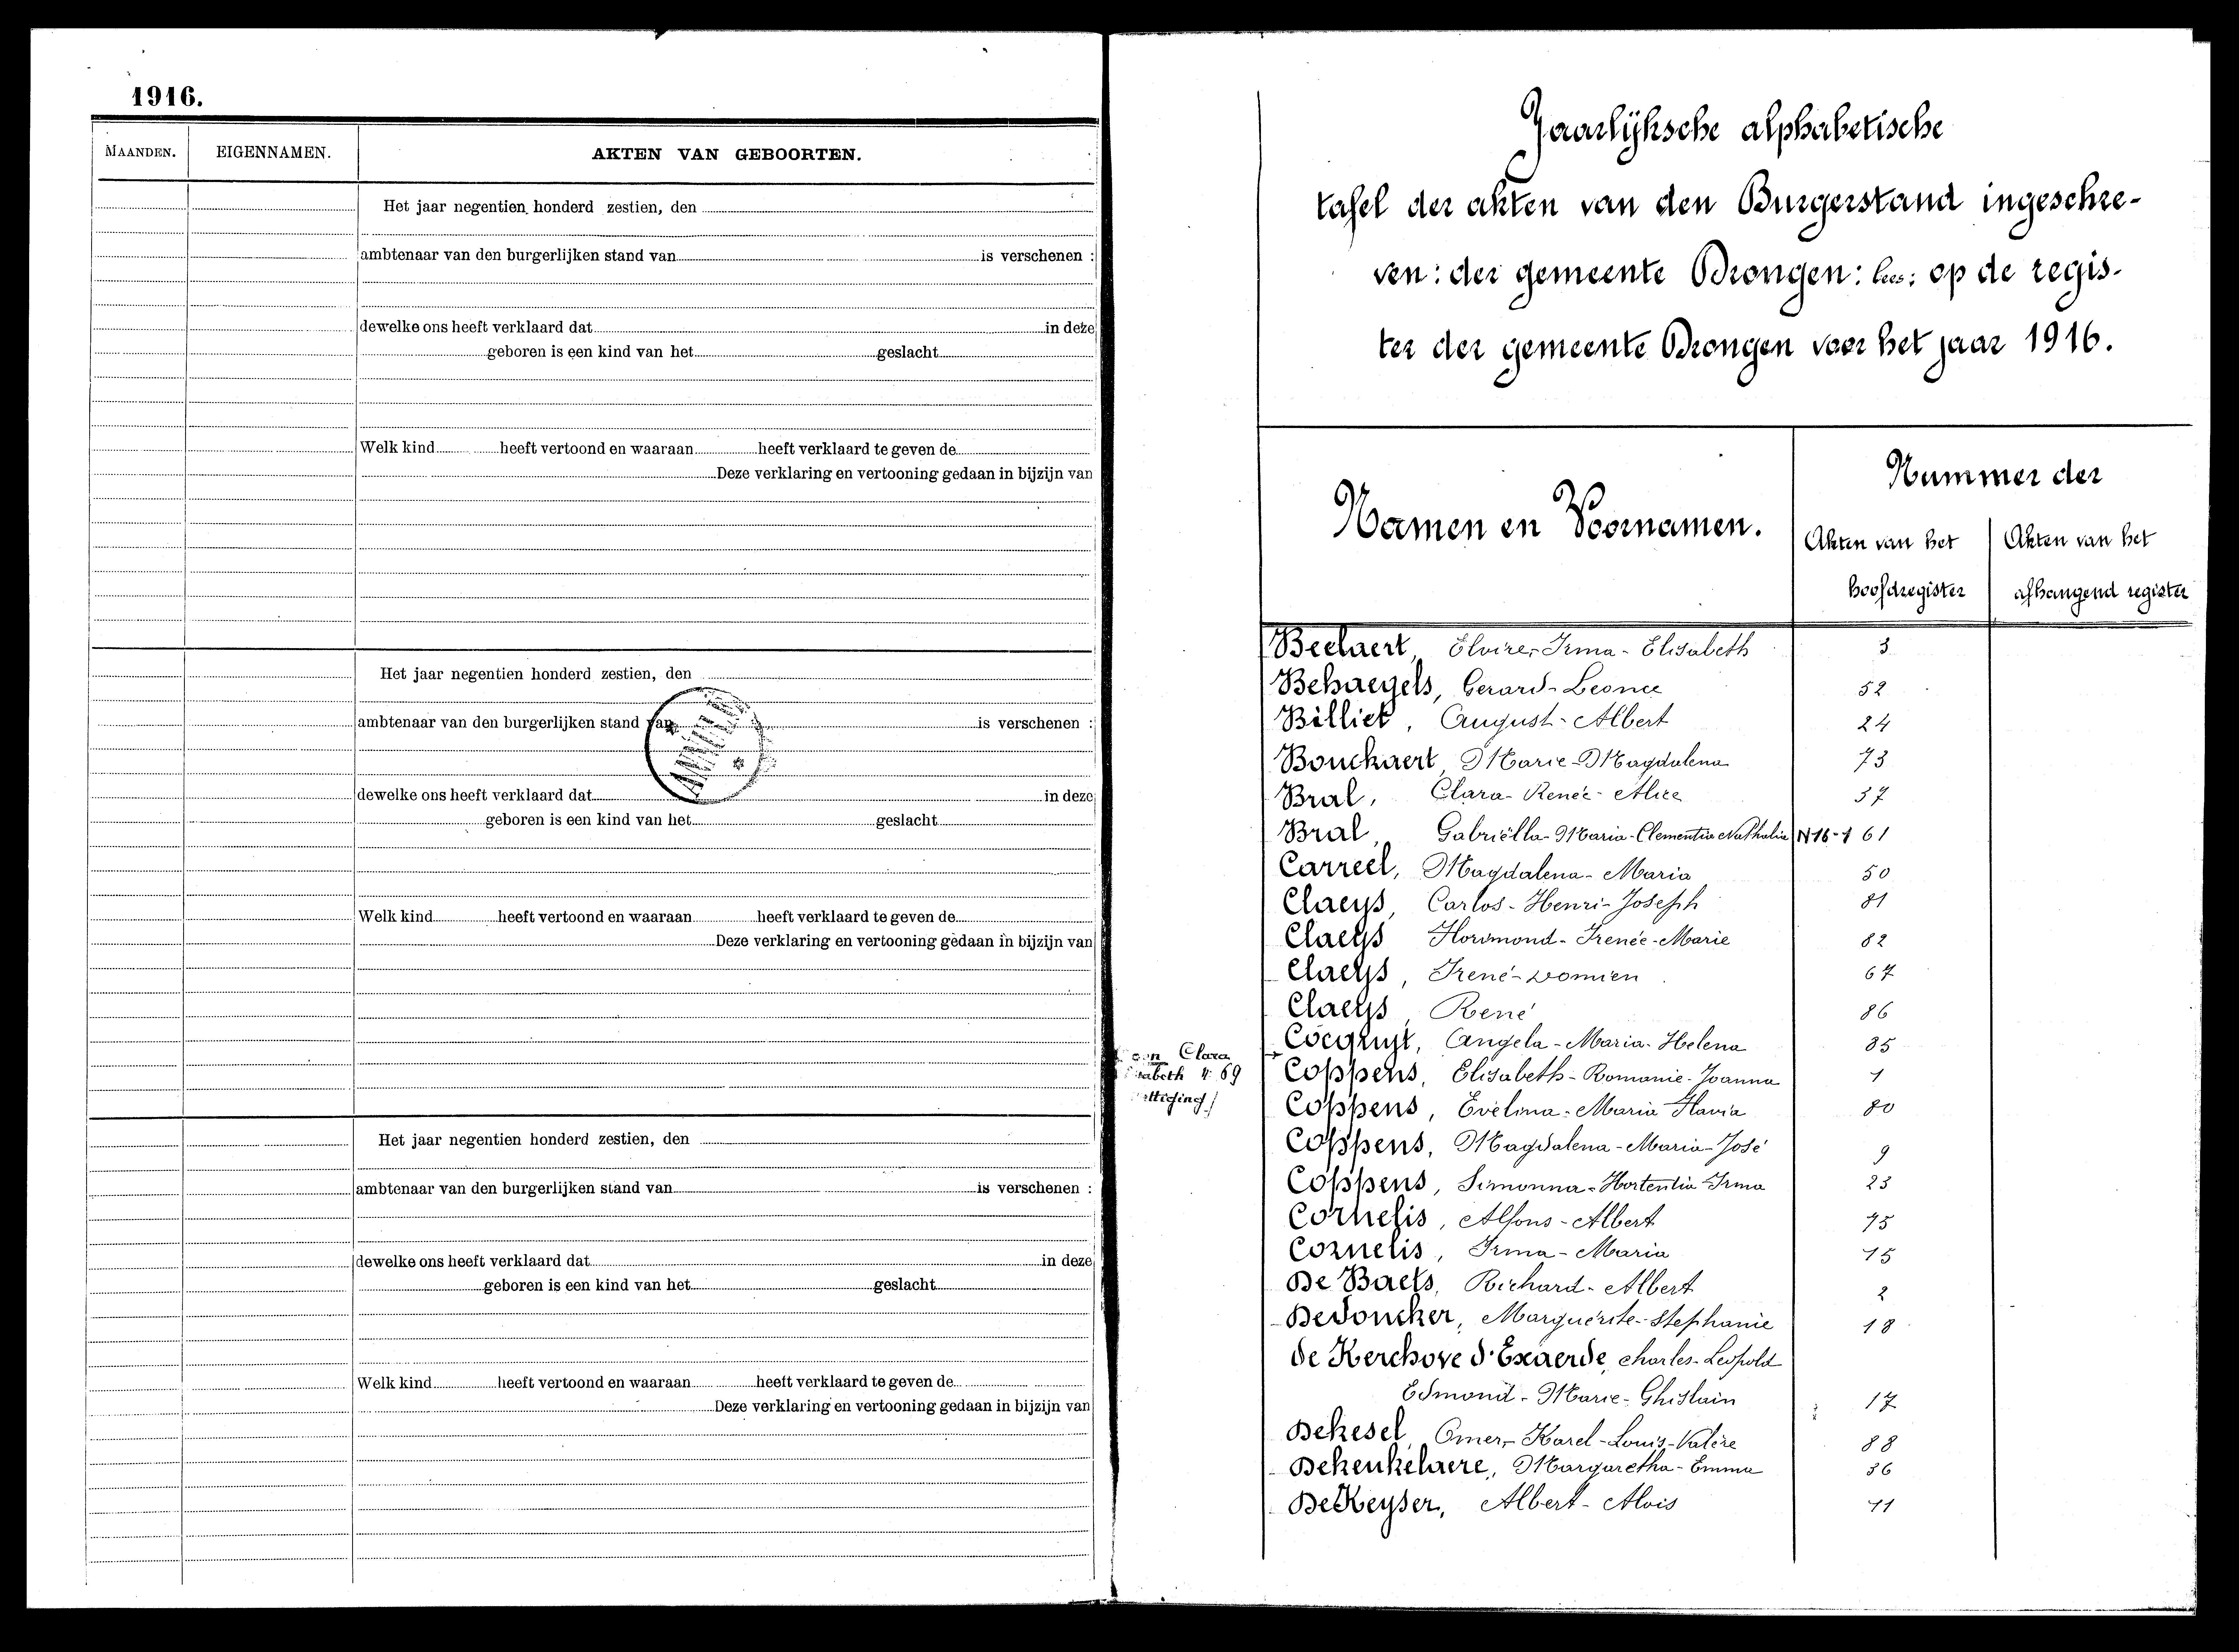 1916.
MAANDEN. EIGENNAMEN. AKTEN VAN GEBOORTEN.
Het jaar negentien honderd zestien, den
ambtenaar van den burgerlijken stand van is verschenen :
dewelke ons heeft verklaard dat in deze
geboren is een kind van het geslacht
Welk kind heeft vertoond en waaraan heeft verklaard te geven de
Deze verklaring en vertooning gedaan in bijzijn van
Het jaar negentien honderd zestien, den
ambtenaar van den burgerlijken stand van is verschenen :
dewelke ons heeft verklaard dat in deze
geboren is een kind van het geslacht
Welk kind heeft vertoond en waaraan heeft verklaard te geven de
Deze verklaring en vertooning gedaan in bijzijn van
Het jaar negentien honderd zestien, den
ambtenaar van den burgerlijken stand van is verschenen :
dewelke ons heeft verklaard dat in deze
geboren is een kind van het geslacht
Welk kind heeft vertoond en waaraan heeft verklaard te geven de
Deze verklaring en vertooning gedaan in bijzijn van
Jaarlijksche alphabetische
tafel der akten van den Burgerstand ingeschre-
ven: der gemeente Drongen: lees: op de regis-
ter der gemeente Drongen voor het jaar 1916.
Namen en Voornamen. Nummer der
Akten van het Akten van het
hoofdregister afhangend register
Beelaert, Elvire-Irma-Elisabeth 3
Behaegels, Gerard-Leonce 52
Billiet, August-Albert 24
Bouckaert, Marie-Magdalena 73
Bral, Clara-Renée-Alice 37
Bral, Gabriëlla-Maria-Clementia Nathalia N16-1 61
Carreel, Magdalena-Maria 50
Claeys, Carlos-Henri-Joseph 81
Claeys Horsmond-Irenée-Marie 82
Claeys, Irené-Domien 67
Claeys, René 86
Cocquyt, Angela-Maria-Helena 35
Clara
4 69
Coppens, Elisabeth-Romanie-Joanna 1
Coppens, Evelina-Maria Flavia 80
Coppens, Magdalena-Maria-José 9
Coppens, Simonna-Hortentia-Irma 23
Cornelis, Alfons-Albert 75
Cornelis, Irma-Maria 15
De Baets, Richard-Albert 2
Dedoncker, Marguerite-Stephanie 18
de Kerchove d'Exaerde, Charles-Leopold
Edmond-Marie-Ghislain 17
Dekesel, Omer-Karel-Louis-Valère 88
Dekenkelaere, Margaretha-Emma 36
DeKeyser, Albert-Alois 11